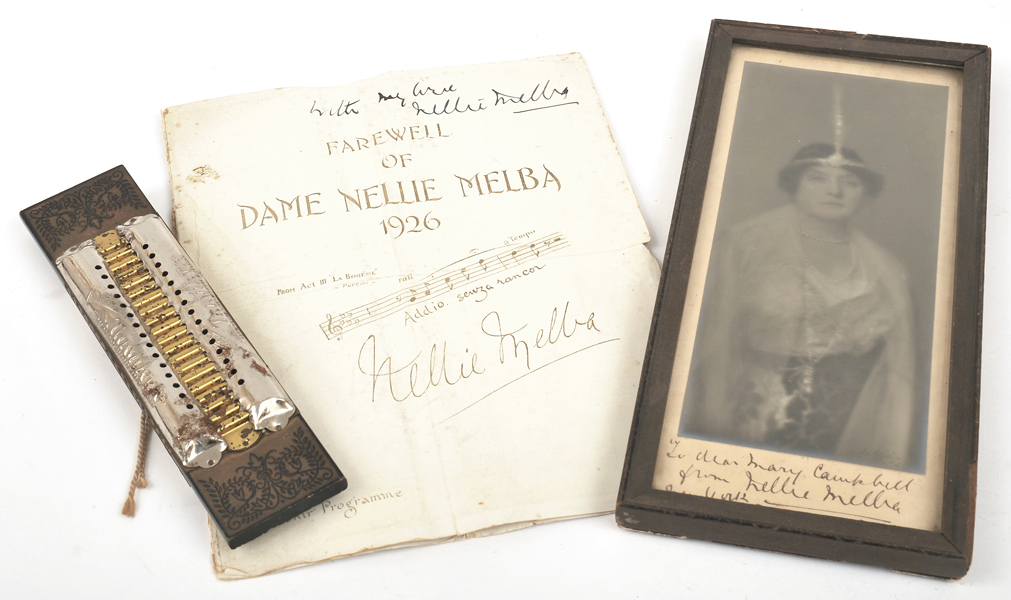 With my love
Nellie Melba
FAREWELL
OF
DAME NELLIE MELBA
1926
FROM ACT III LA BOHEME
PUCCINI
rall
a Tempo
Addio. senza rancor
Nellie Melba
Programme
To dear Mary Campbell
from Nellie Melba
York